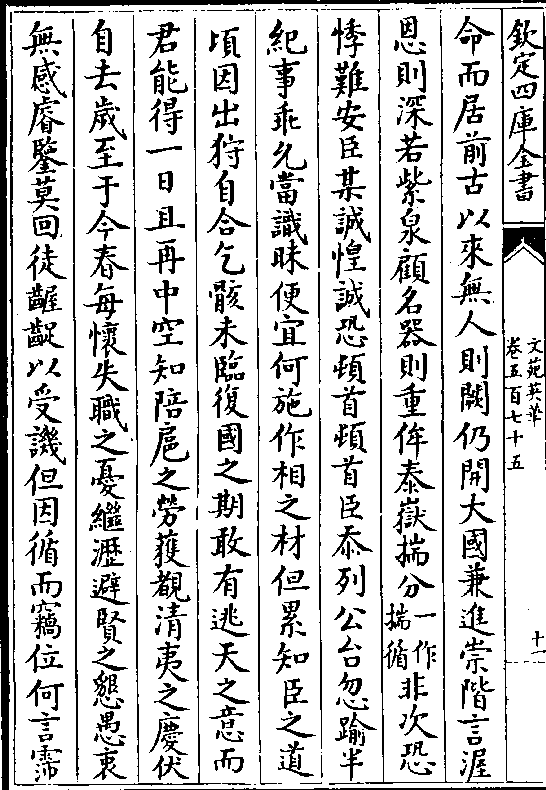 欽定四庫全書
文苑英華
卷五百七十五
十一
命而居前古以來無人則闕仍開大國兼進崇階言渥
恩則深若紫泉顧名器則重侔泰嶽揣分一作揣循非次恐
悸難安臣某誠惶誠恐頓首頓首臣忝列公台忽踰半
紀事乖允當識昧便宜何施作相之材但累知臣之道
頃因出狩自合乞骸未臨復國之期敢有逃天之意而
君能得一日且再中空知陪扈之勞獲覩清夷之慶伏
自去歲至于今春每懷失職之憂繼瀝避賢之懇愚衷
無感睿鑒莫回徒齷齪以受譏但因循而竊位何言霈